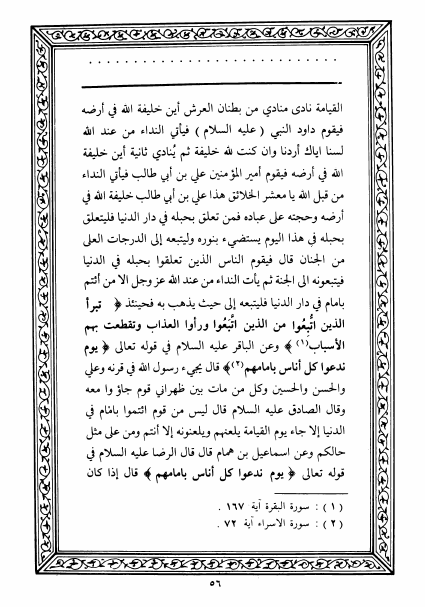 القيامة نادى منادي من بطنان العرش أين خليفة الله في أرضه
فيقوم داود النبي ( عليه السلام ) فيأتي النداء من عند الله
لسنا اياك أردنا وان كنت لله خليفة ثم يُنادي ثانية أين خليفة
الله في أرضه فيقوم أمير المؤمنين علي بن أبي طالب فيأتي النداء
من قبل الله يا معشر الخلائق هذا علي بن أبي طالب خليفة الله في
أرضه وحجته على عباده فمن تعلق بحبله في دار الدنيا فليتعلق
بحبله في هذا اليوم يستضيء بنوره وليتبعه إلى الدرجات العلى
من الجنان قال فيقوم الناس الذين تعلقوا بحبله في الدنيا
فيتبعونه الى الجنة ثم يأت النداء من عند الله عز وجل الا من أئتم
بامام في دار الدنيا فليتبعه إلى حيث يذهب به فحينئذ ﴿ تبرأ
الذين اتُّبِعُوا من الذين اتَّبَعُوا ورأوا العذاب وتقطعت بهم
الأسباب(١) ﴾ وعن الباقر عليه السلام في قوله تعالى ﴿ يوم
ندعوا كل أناس بامامهم(٢)﴾ قال يجيء رسول الله في قرنه وعلي
والحسن والحسين وكل من مات بين ظهراني قوم جاؤا معه
وقال الصادق عليه السلام قال ليس من قوم ائتموا بامام في
الدنيا إلا جاء يوم القيامة يلعنهم ويلعنونه إلا أنتم ومن على مثل
حالكم وعن اسماعيل بن همام قال قال الرضا عليه السلام في
قوله تعالى ﴿ يوم ندعوا كل أناس بامامهم ﴾ قال إذا كان
( ١ ) : سورة البقرة آية ١٦٧ .
( ٢ ) : سورة الاسراء آية ٧٢ .
٥٦